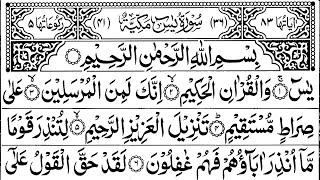 اٰیَاتُهَا ٨٣ (٣٦) سُوْرَةُ يٰسٓ مَكِّيَّةٌ (٤١) رُكُوْعَاتُهَا ٥
بِسْمِ اللّٰهِ الرَّحْمٰنِ الرَّحِيْمِ
يٰسٓ ۚ‏ ١ وَالْقُرْاٰنِ الْحَكِيْمِ ۙ‏ ٢ اِنَّكَ لَمِنَ الْمُرْسَلِيْنَ ۙ‏ ٣ عَلٰى
صِرَاطٍ مُّسْتَقِيْمٍ ؕ‏ ٤ تَنْزِيْلَ الْعَزِيْزِ الرَّحِيْمِ ۙ‏ ٥ لِتُنْذِرَ قَوْمًا
مَّاۤ اُنْذِرَ اٰبَآؤُهُمْ فَهُمْ غٰفِلُوْنَ ٦ لَقَدْ حَقَّ الْقَوْلُ عَلٰٓى